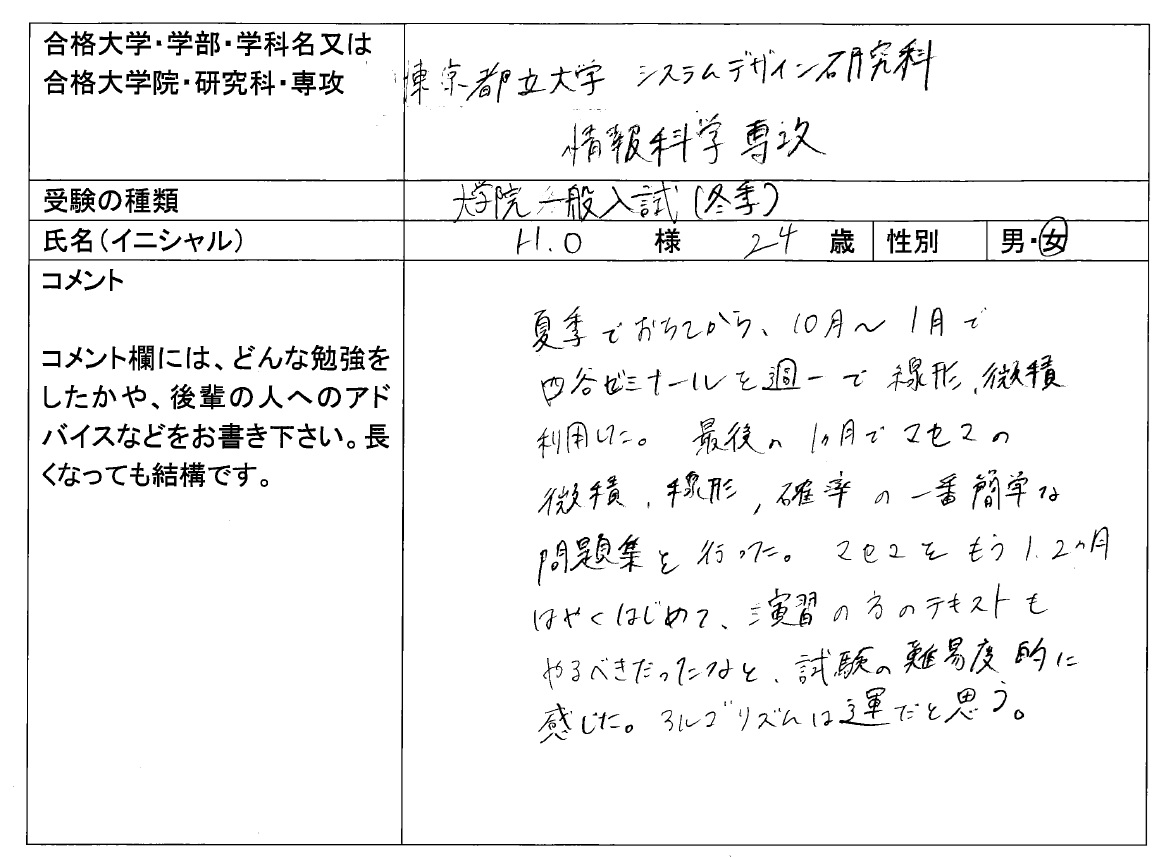 合格大学・学部・学科名又は
合格大学院・研究科・専攻
東京都立大学 システムデザイン研究科
情報科学専攻
受験の種類
大学院一般入試(冬季)
氏名(イニシャル)
H.O 様 24 歳 性別 男・女
コメント
コメント欄には、どんな勉強を
したかや、後輩の人へのアド
バイスなどをお書き下さい。長
くなっても結構です。
夏季でおちてから、10月〜1月で
四谷ゼミナールを週一で線形、微積
利用した。最後の1ヶ月でマセマの
微積、線形、確率の一番簡単な
問題集を行った。マセマをもう1.2ヶ月
はやくはじめて、演習の方のテキストも
やるべきだったなと、試験の難易度的に
感じた。アルゴリズムは運だと思う。